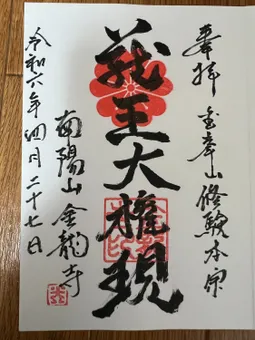 奉拝 金峯山修験本宗
蔵王大権現
南陽山 金龍寺
令和六年四月二十七日